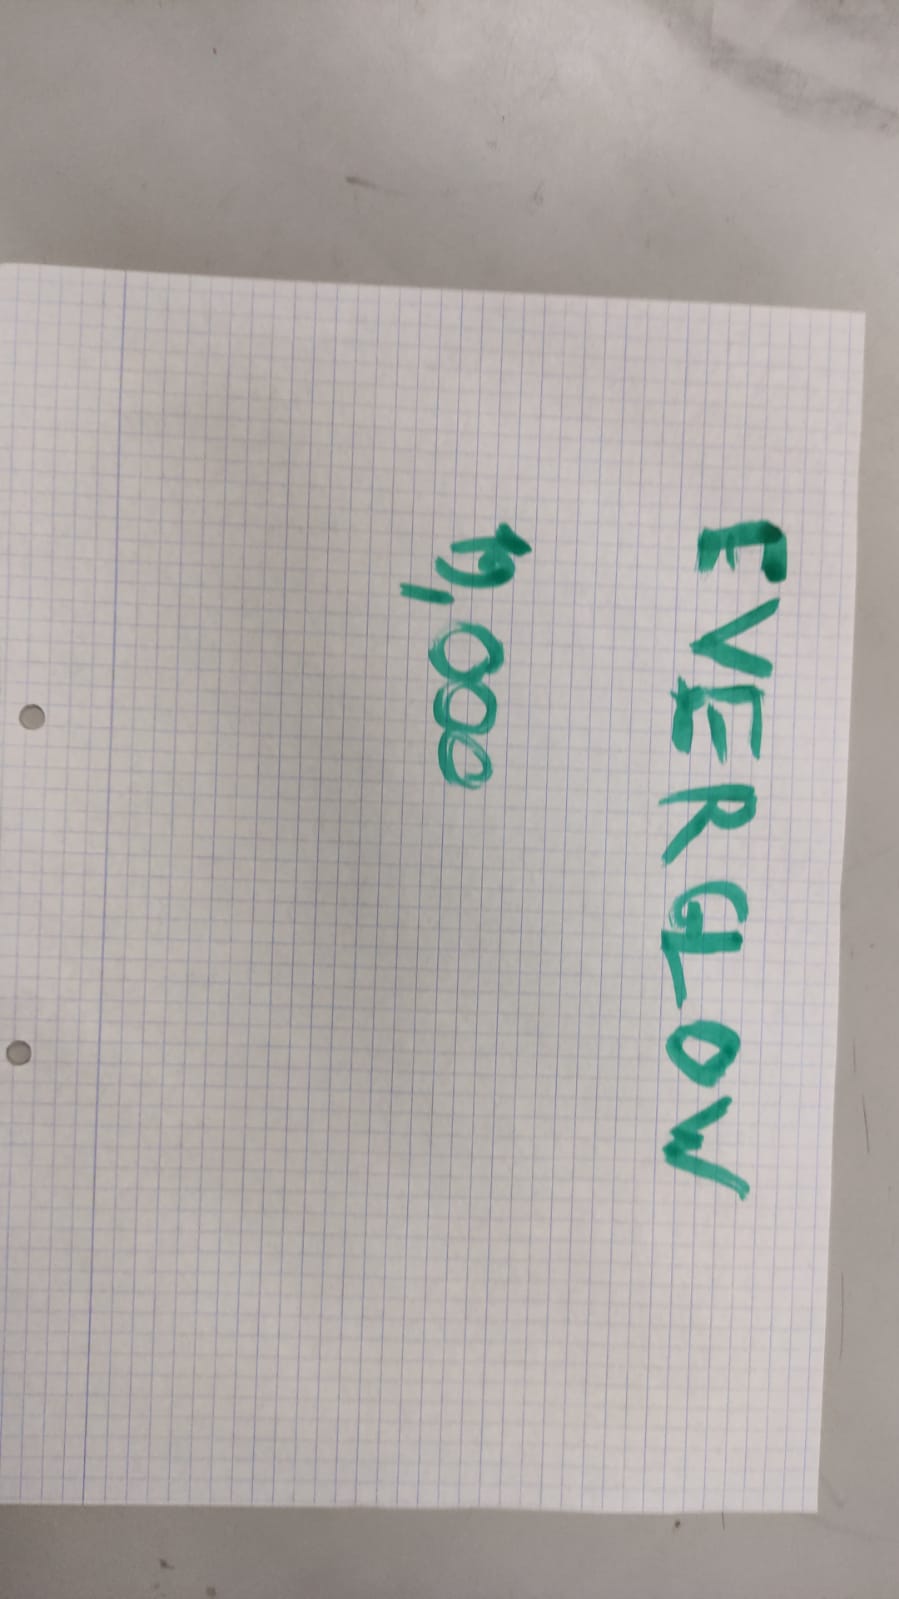 EVERGLOW
19,000